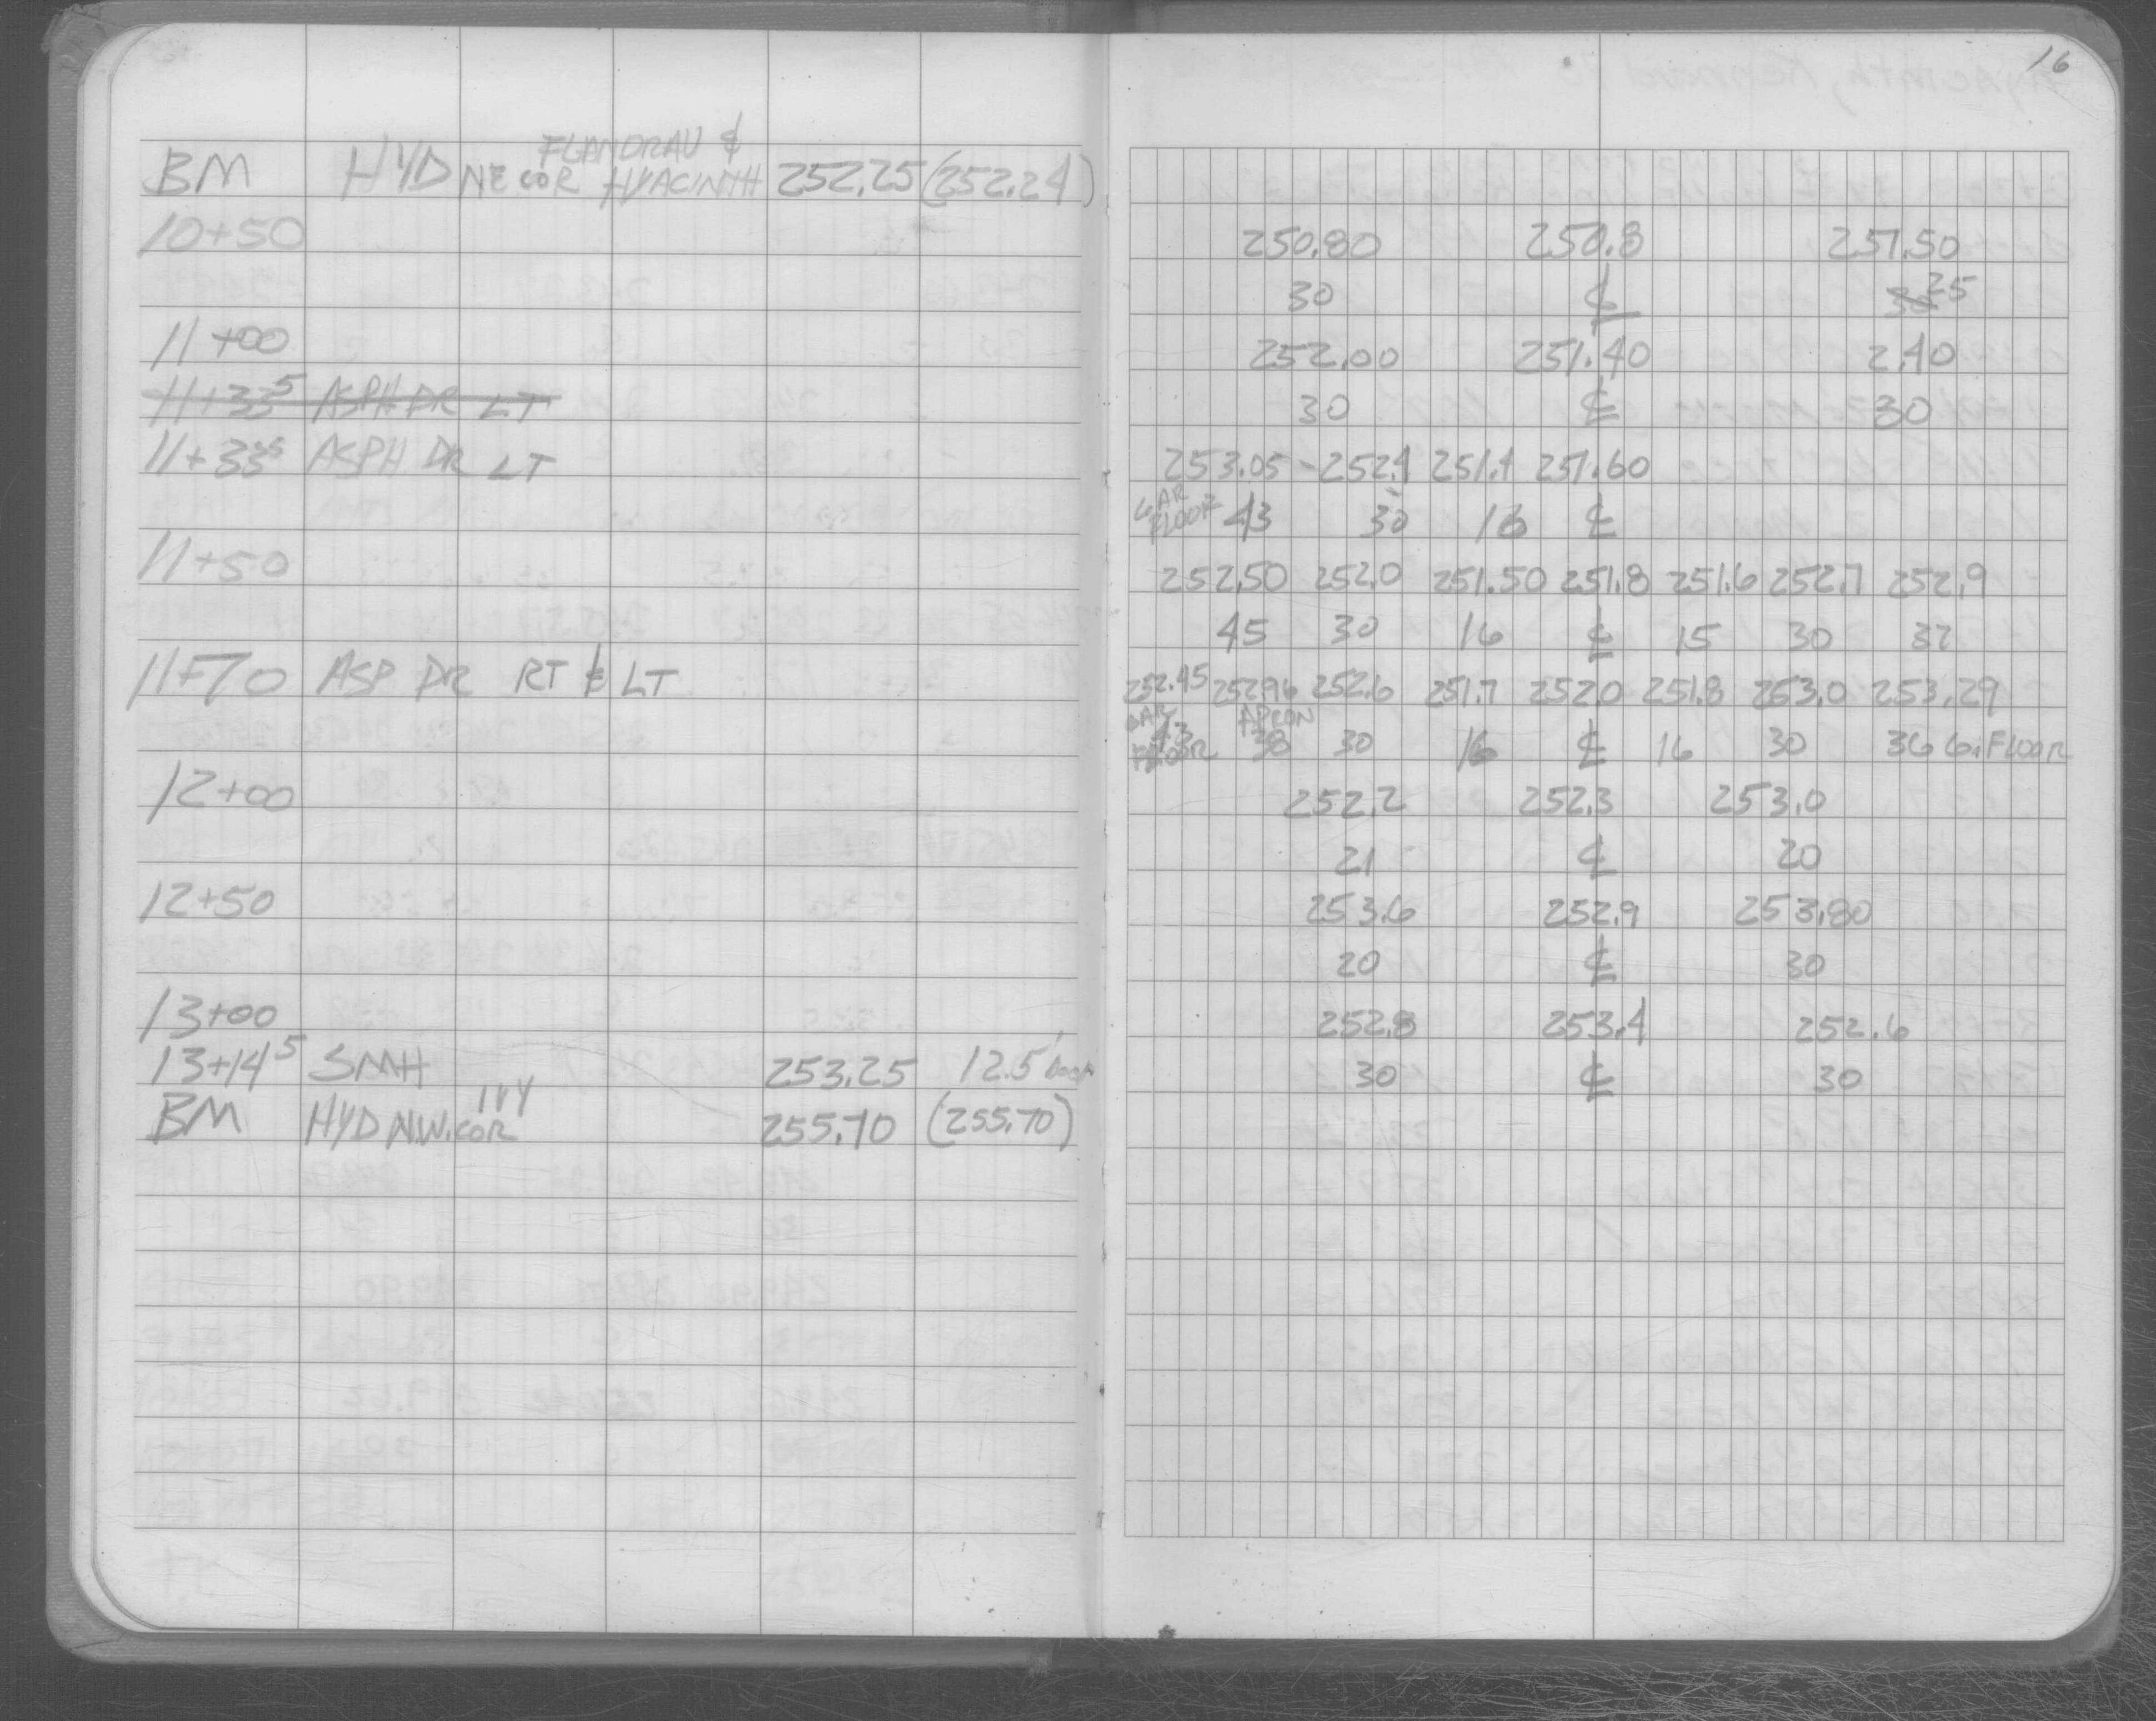 16
FLANDRAU &
BM HYD NE COR HYACINTH 252.25 (252.24)
10+50 250.80 250.8 251.50
30 ℄ 25
11+00 252.00 251.40 2.40
11+33⁵ ASPH DR LT 30 ℄ 30
11+33⁵ ASPH DR LT 253.05 252.4 251.4 251.60
GAR FLOOR 43 30 16 ℄
11+50 252.50 252.0 251.50 251.8 251.6 252.7 252.9
45 30 16 ℄ 15 30 37
11+70 ASP DR RT & LT 252.45 252.96 252.6 251.7 252.0 251.8 253.0 253.29
GAR FLOOR 43 APRON 38 30 16 ℄ 16 30 36 G. FLOOR
12+00 252.2 252.3 253.0
21 ℄ 20
12+50 253.6 252.9 253.80
20 ℄ 30
13+00 252.8 253.4 252.6
13+14⁵ SMH 253.25 12.5' 30 ℄ 30
IVY
BM HYD N.W. COR 255.70 (255.70)